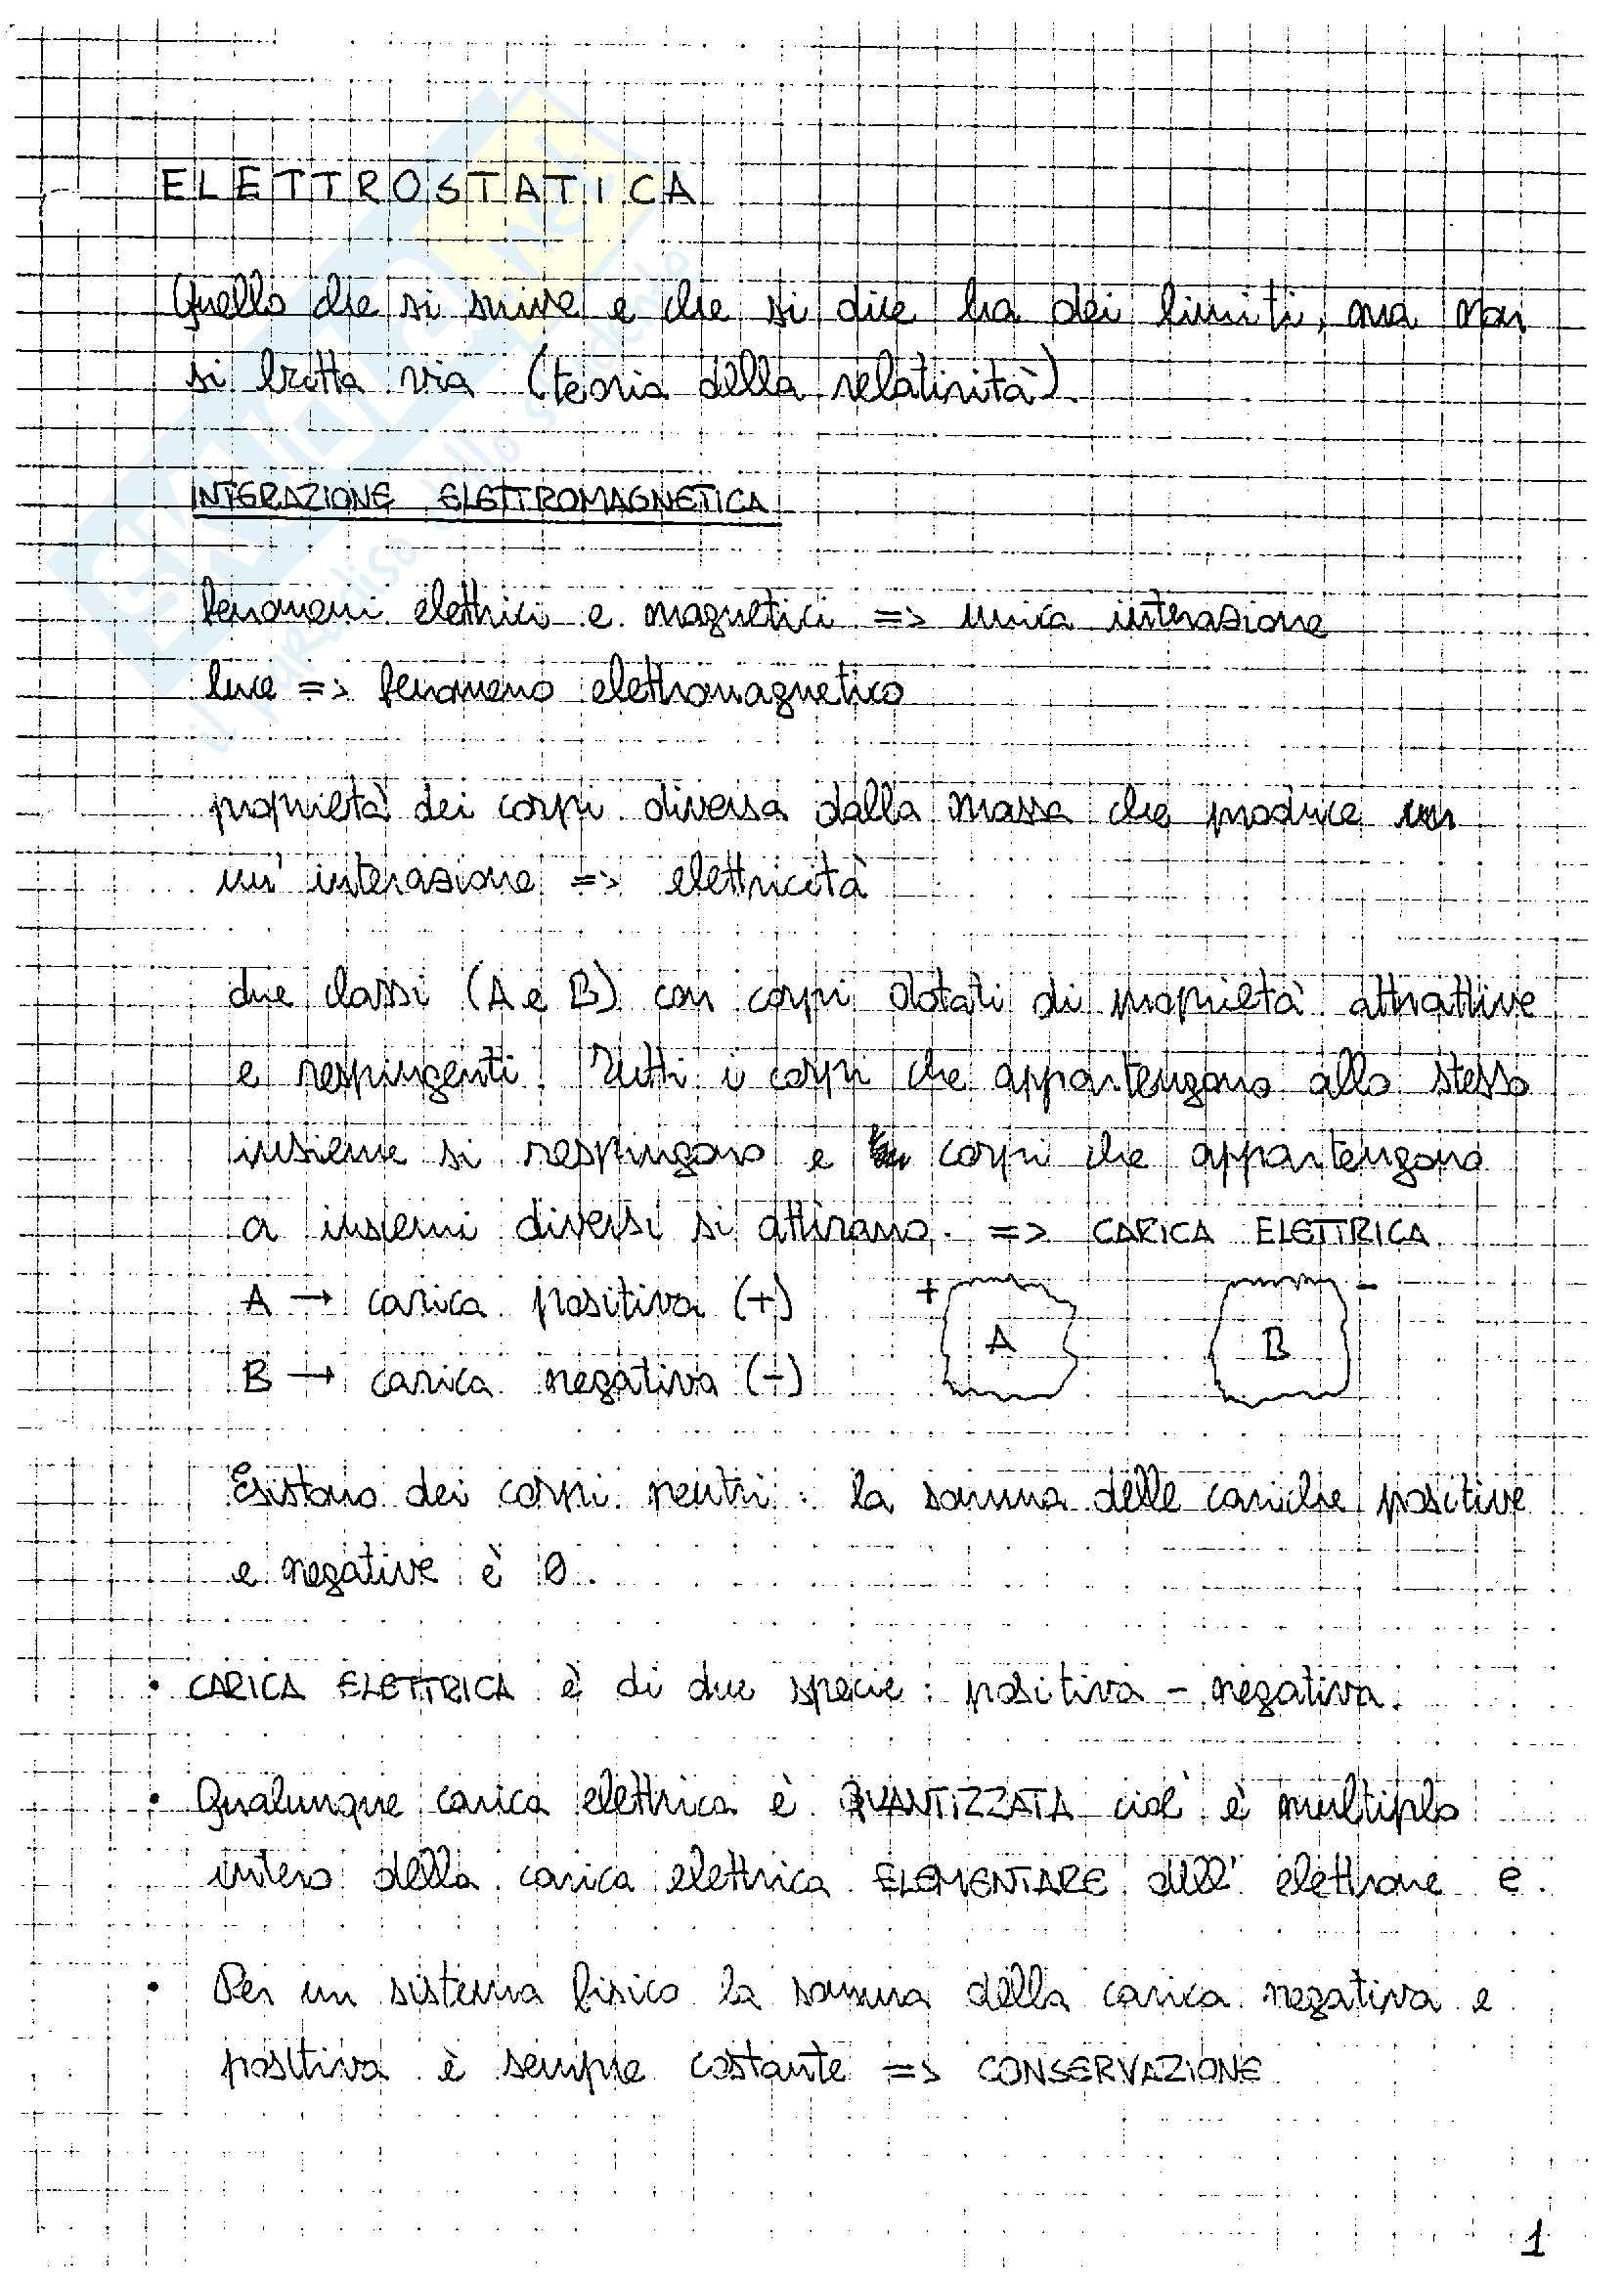 ELETTROSTATICA
Quello che si scrive e che si dice ha dei limiti, ma non
si butta via (teoria della relatività).
INTERAZIONE ELETTROMAGNETICA
fenomeni elettrici e magnetici => unica interazione
luce => fenomeno elettromagnetico
proprietà dei corpi diversa dalla massa che produce
un' interazione => elettricità
due classi (A e B) con corpi dotati di proprietà attrattive
e respingenti. Tutti i corpi che appartengono allo stesso
insieme si respingono e corpi che appartengono
a insiemi diversi si attirano. => CARICA ELETTRICA
A → carica positiva (+)
+ A B -
B → carica negativa (-)
Esistono dei corpi neutri: la somma delle cariche positive
e negative è 0.
• CARICA ELETTRICA è di due specie: positiva - negativa.
• Qualunque carica elettrica è QUANTIZZATA cioè è multiplo
intero della carica elettrica ELEMENTARE dell' elettrone e.
• Per un sistema fisico la somma della carica negativa e
positiva è sempre costante => CONSERVAZIONE
1